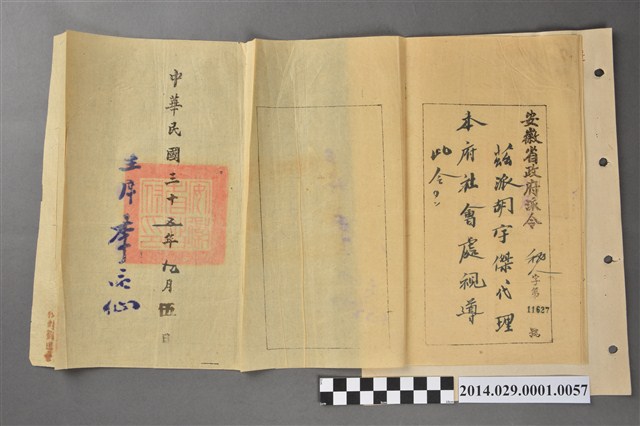 安徽省政府派令
秘人字第11627號
茲派胡宇傑代理
本府社會處視導
此令
中華民國三十五年九月伍日
主席李品仙
2014.029.0001.0057